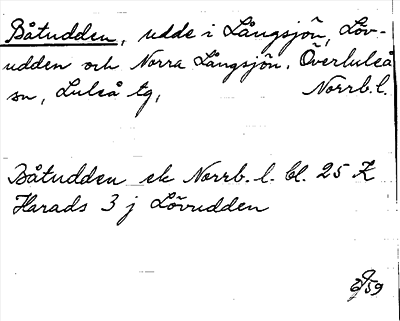 Båtudden, udde i Långsjön, Löv-
udden och Norra Långsjön. Överluleå
sn, Luleå tg, Norrb.l.
Båtudden ek Norrb.l. bl. 25 K
Harads 3 j Lövudden
59